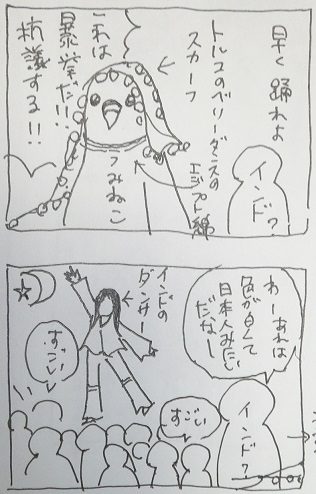 早く踊れよ
インド?
トルコのベリーダンスの
スカーフ
エジプト綿
うみねこ
これは
暴挙だ!!
抗議する!!
わーあれは
色が白くて
日本人みたい
だなー
インド?
インドの
ダンサー
すごい
すごい